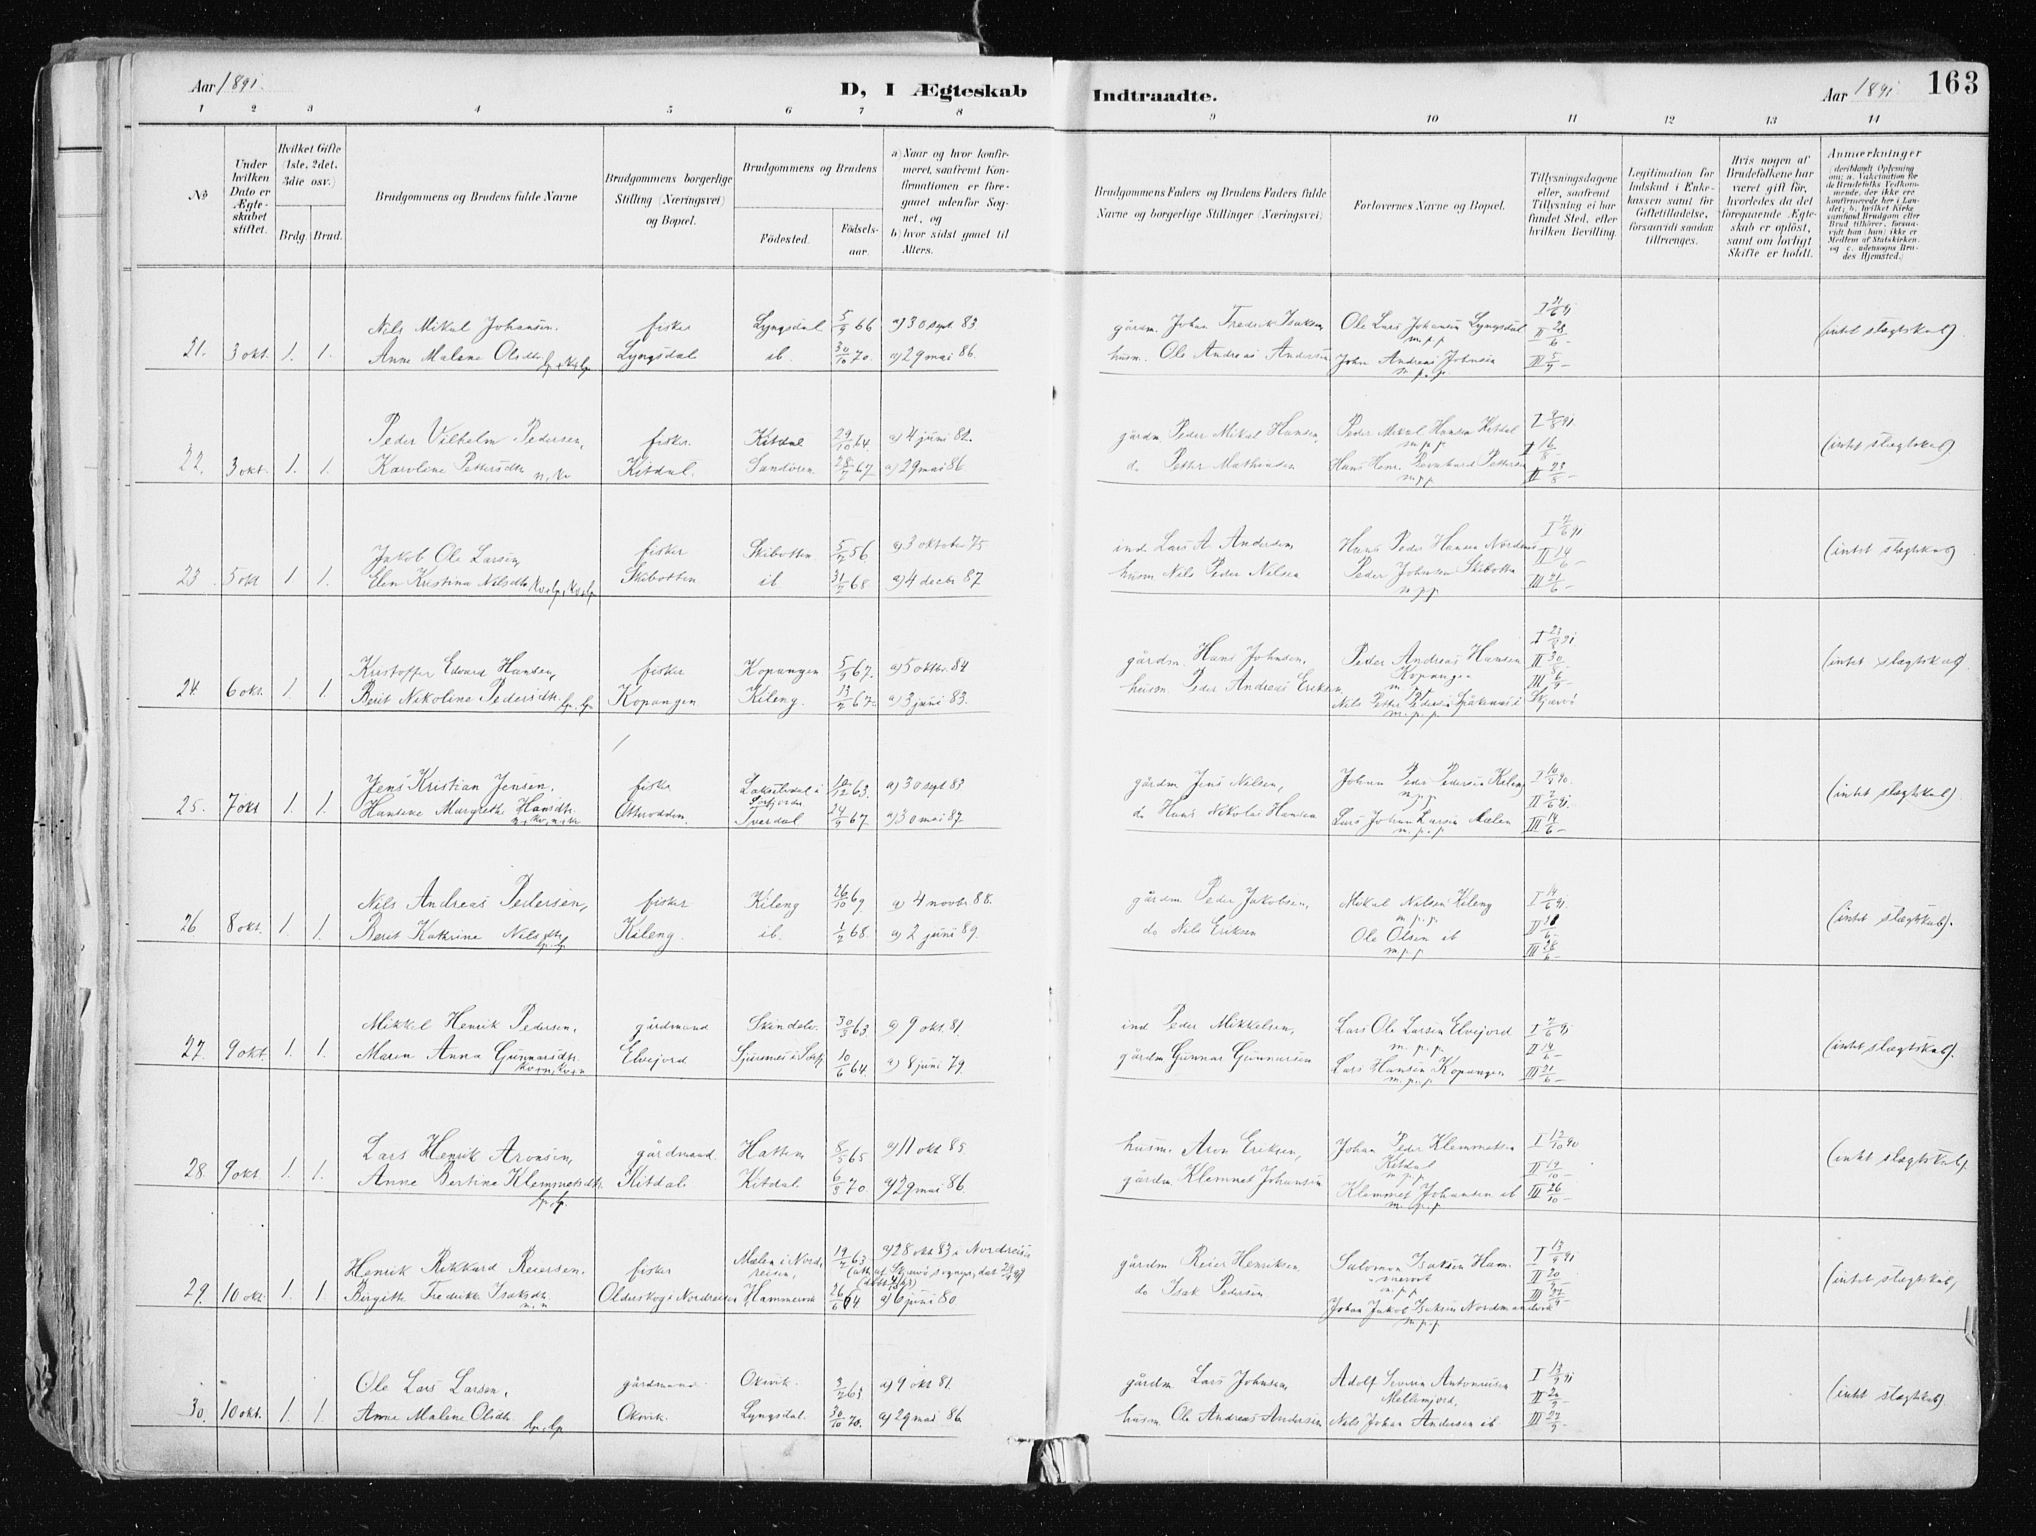 Aar 1891. D, I Ægteskab Indtraadte. Aar 1891 163
1 2 3 4 5 6 7 8 9 10 11 12 13 14
No
Under hvilken Dato er Ægteskabet stiftet.
Hvilket Gifte (1ste, 2det, 3die osv.)
Brdg. Brud.
Brudgommens og Brudens fulde Navne
Brudgommens borgerlige Stilling (Næringsvei) og Bopæl.
Brudgommens og Brudens
Fødested. Fødsels-aar.
a) Naar og hvor konfirmeret, saafremt Konfirmationen er foregaaet udenfor Sognet, og
b) hvor sidst gaaet til Alters.
Brudgommens Faders og Brudens Faders fulde Navne og borgerlige Stillinger (Næringsvei)
Forlovernes Navne og Bopæl.
Tillysningsdagene eller, saafremt Tillysning ei har fundet Sted, efter hvilken Bevilling.
Legitimation for Indskud i Enkekassen samt for Giftetilladelse, forsaavidt saadan tiltrænges.
Hvis nogen af Brudefolkene har været gift før, hvorledes da det foregaaende Ægteskab er opløst, samt om lovligt Skifte er holdt.
Anmærkninger
(deriblandt Oplysning om: a. Vakcination for de Brudefolks Vedkommende, der ikke ere konfirmerede her i Landet; b. hvilket Kirkesamfund Brudgom eller Brud tilhører, forsaavidt han (hun) ikke er Medlem af Statskirken, og c. udensogns Brudes Hjemsted.)
Nils Mikal Johansen. fisker Lyngsdal 5/9 66 a) 30 sept 83 gårdm. Johan Fredrik Isaksen Ole Lars Johansen Lyngsdal m.p.p I 21/6 91
21. 3 okt. 1. 1. Anne Malene Olsdtr. Lyngsdal ib. 30/10 70. a) 29 mai 86. husm. Ole Andreas Andersen John Andreas Johnsen m.p.p. II 28/6 – III 5/7 – (intet slægtskab).
Peder Vilhelm Pedersen, fisker Kitdal 29/10 64. a) 4 juni 82. gårdm. Peder Mikal Hansen, Peder Mikal Hansen Kitdal m.p.p I 9/8 91
22. 3 okt. 1. 1. Karoline Pettersdtr Kitdal. Sandøren 28/7 67. a) 29 mai 86 do Petter Mathiesen Hans Henr. Bernhard Pettersen m.p.p II 16/8 – II 23/8 – (intet slægtskab)
Jakob Ole Larsen, fisker Skibotten 5/2 56 a) 3 oktober 75 ind. Lars A. Andersen, Hans Peder Hansen Nordnes I 7/6 91
23. 5 okt 1. 1. Elen Kristina Nilsdtr Skibotten ib 31/2 68 a) 4 decbr 87. husm. Nils Peder Nilsen Peder Johnsen Skibotten m.p.p II 14/6 – III 21/6 – (intet slægtskab)
Kristoffer Edvard Hansen, fisker Kopangen 5/9 67. a) 5 oktbr. 84 gårdm. Hans Johnsen, Peder Andreas Hansen Kopangen I 23/8 91
24 6 okt. 1. 1. Berit Nikoline Pedersdtr. Kopangen Kileng. 13/2 67. a) 3 juni 83. husm. Peder Andreas Eriksen Nils Petter Pedersen Spåkenæs i Skjærvø m.p.p. II 30/8 – III 6/9 – (intet slægtskab).
Jens Kristian Jensen, fisker Lakselvdal i Sørfjorden 10/12 63. a) 30 sept 83 gårdm Jens Nilsen, Johan Peder Pedersen Kileng m.p.p I 10/8 90.
25. 7 okt 1. 1. Hansine Margrethe Hansdtr. Otterodden. Tverdal 24/9 67. a) 30 mai 87. do Hans Nikolai Hansen Lars Johan Larsen Mælen m.p.p. II 7/6 91. III 14/6 – (intet slægtskab).
Nils Andreas Pedersen, fisker Kileng 26/10 69 a) 4 novbr 88. gårdm Peder Jakobsen, Mikal Nilsen Kileng m.p.p. I 14/6 91.
26 8 okt. 1. 1. Berit Kathrine Nilsdtr. Kileng. ib. 1/2 68. a) 2 juni 89. do Nils Eriksen Ole Olsen ib m.p.p II 21/6 – III 28/6 – (intet slægtskab).
Mikkel Henrik Pedersen, gårdmand Skindelv. 30/3 63. a) 9 okt. 81 ind Peder Mikkelsen, Lars Ole Larsen Elvejord m.p.p. I 7/6 91
27. 9 okt. 1. 1. Maren Anna Gunnarsdtr. Elvejord Sjursnes i Sørfj. 10/6 64. a) 8 juni 79. gårdm Gunnar Gunnarsen Lars Hansen Kopangen m.p.p. II 14/6 – III 21/6 – (intet slægtskab).
Lars Henrik Aronsen, gårdmand. Hatten 8/5 65 a) 11 okt 85 husm. Aron Eriksen, Johan Peder Klemmetsen Kitdal m.p.p. I 12/10 90
28. 9 okt. 1. 1. Anne Bertine Klemmetsdtr. Kitdal. Kitdal. 6/3 70. a) 29 mai 86. gårdm. Klemmet Johansen Klemmet Johansen ib m.p.p. II 19/10 – III 26/10 – (intet slægtskab).
Henrik Rikkard Reiersen. fisker Mælen i Nordreisen, 19/2 63 a) 28 okt 83 i Nordreisen gårdm Reier Henriksen Salomon Isaksen Hammervik m.p.p I 13/9 91
29. 10 okt. 1. 1. Birgith Fredrikke Isaksdtr. Olderskog i Nordreisen Hammervik 26/6 64 a) 6 juni 80 do Isak Pedersen Johan Jakob Isaksen Nordmandvik m.p.p II 20/9 – III 27/9 – (intet slægtskab)
Ole Lars Larsen, gårdmand Okvik. 3/2 63 a) 9 okt 81. gårdm. Lars Johnsen, Adolf Severin Antonisen Mellemjord, I 13/9 91
30. 10 okt. 1. 1. Anne Malene Olsdtr. Okvik. Lyngsdal. 30/10 70. a) 29 mai 86. husm. Ole Andreas Andersen Nils Johan Andersen ib II 20/9 – III 27/9 – (intet slægtskab).